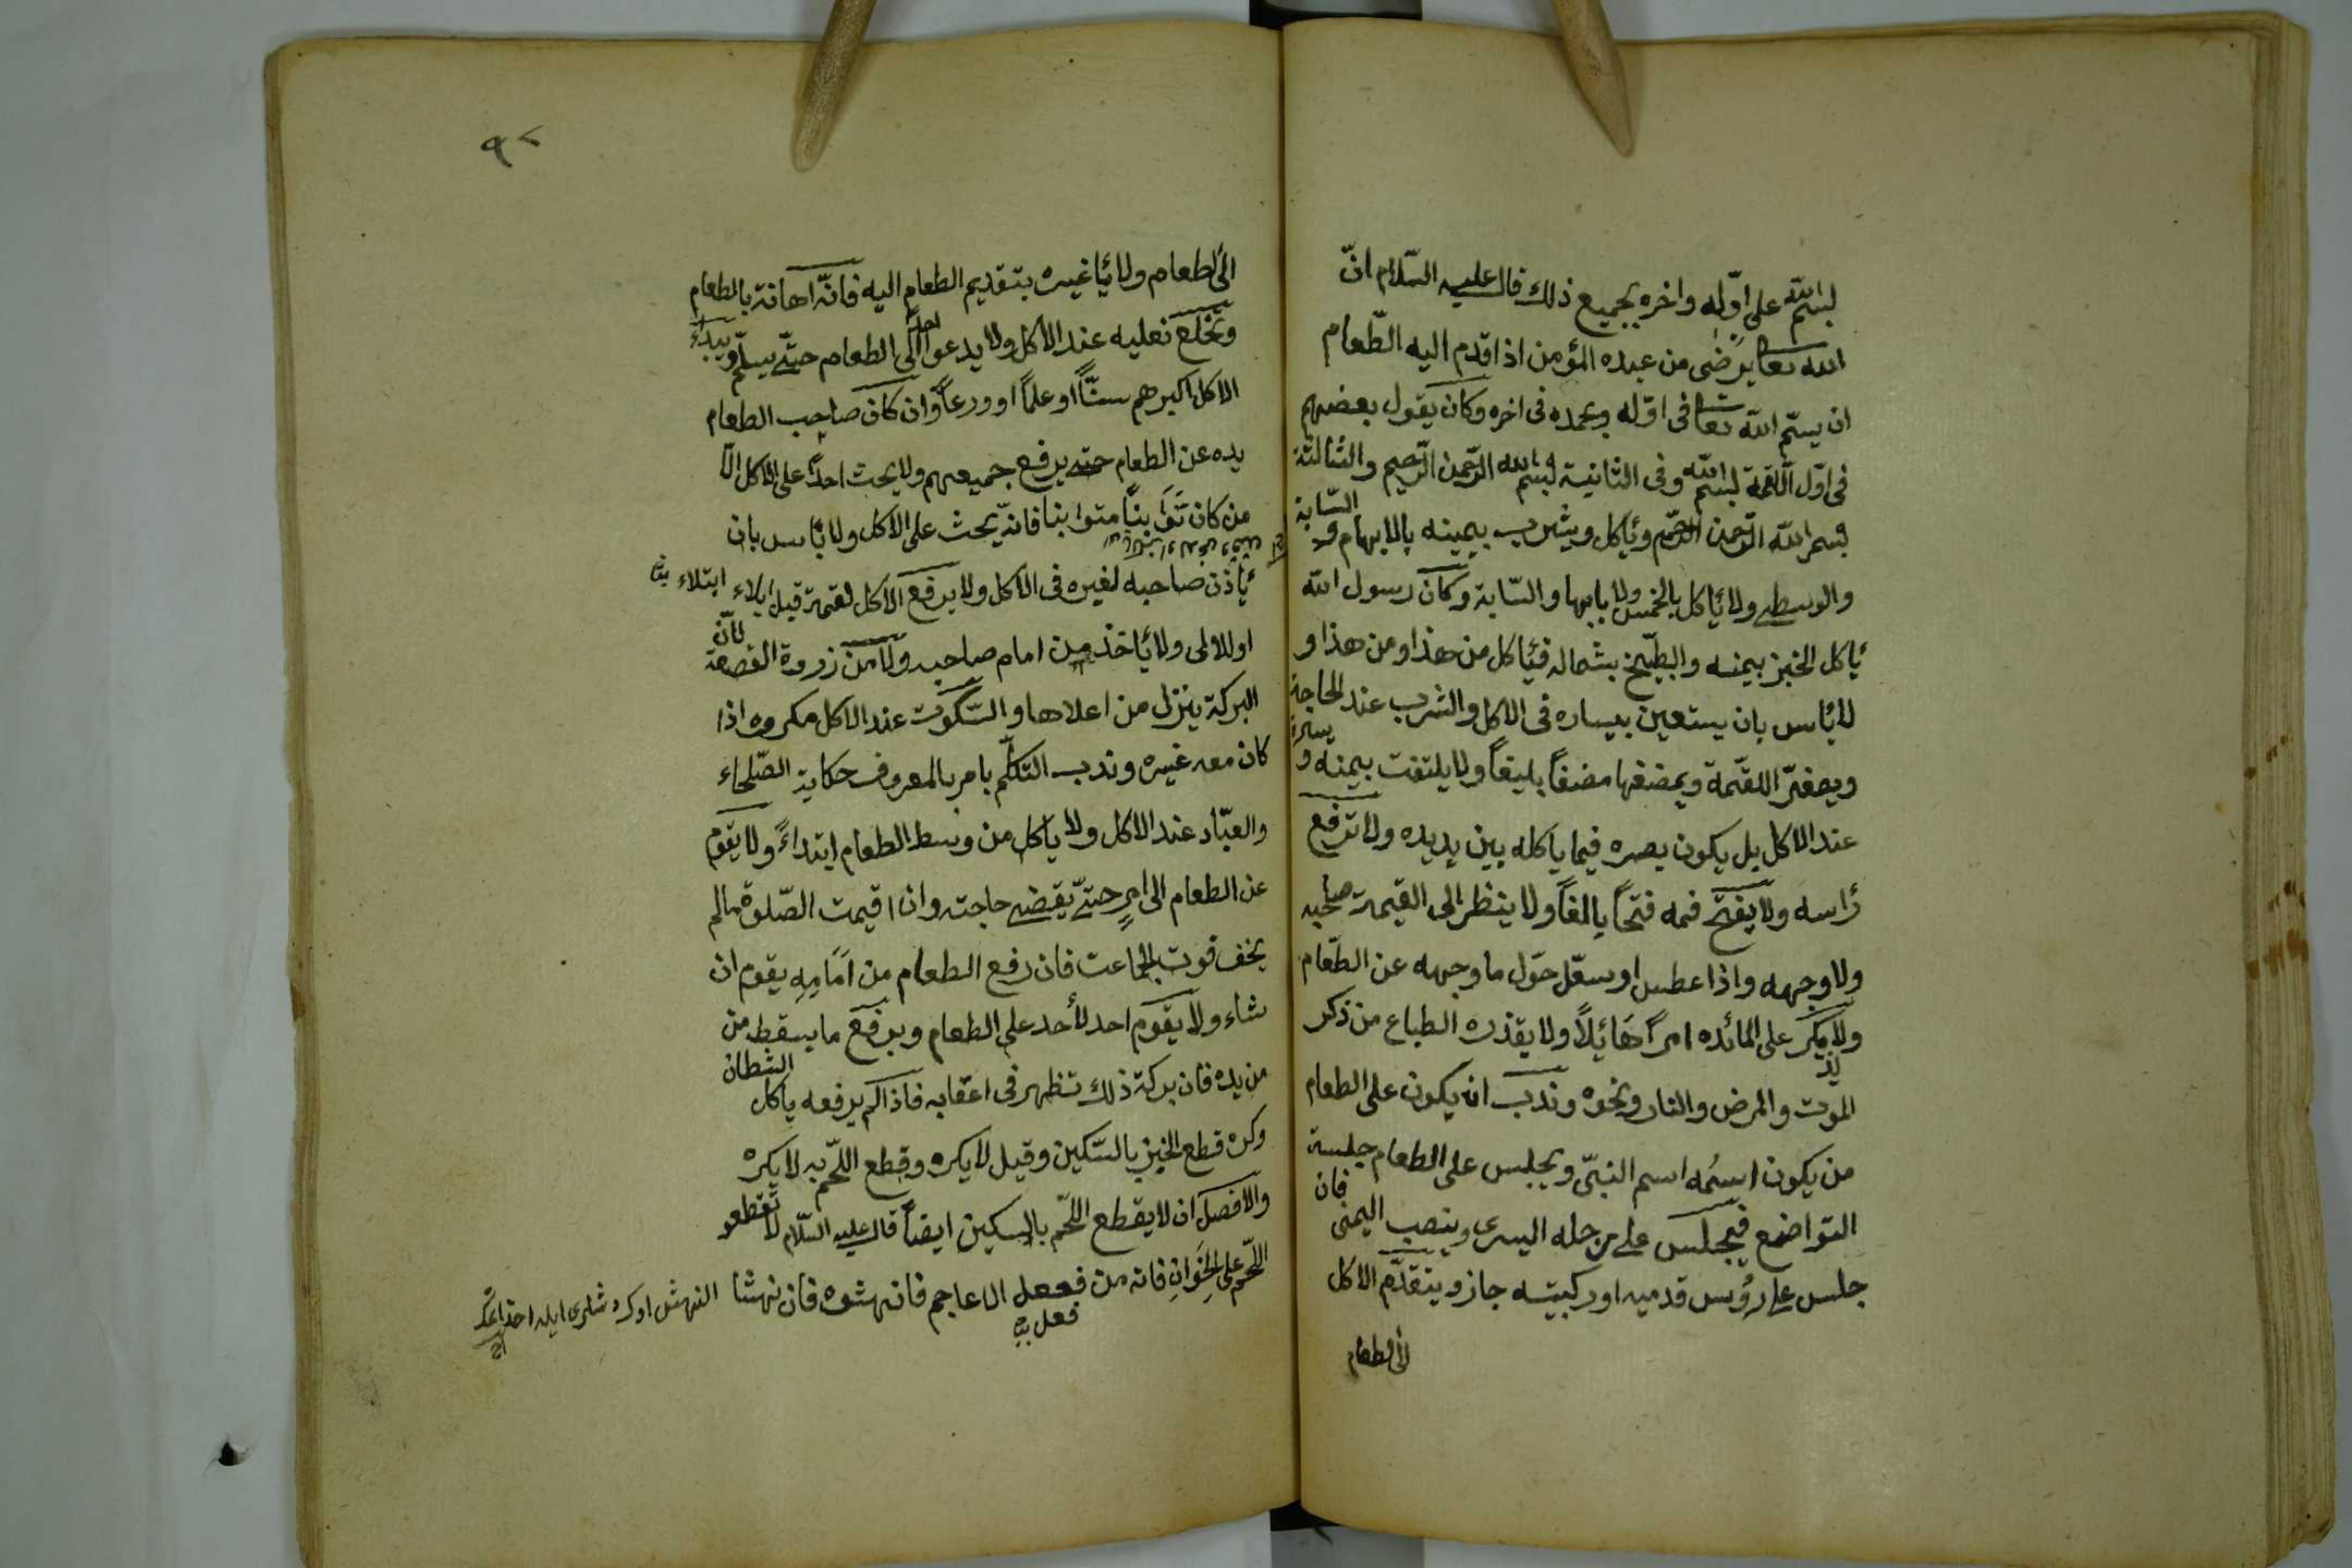 لبسم الله على اوّله واخره بجميع ذلك قال عليه السّلام انّ
الله تعا يرضى من عبده المؤمن اذا قدم اليه الطّعام
ان يسمّ الله تعا فى اوّله وبحمده فى اخره وكان يقول بعضهم
فى اوّل اللّقمة بسم الله وفى الثانية بسم الله الرّحمن الرّحيم والثالثة
بسم الله الرّحمن الرّحيم ويأكل ويشرب بيمينه بالابهام و السّبابة
والوسطى ولا يأكل بالخمس ولا بابها والسّبابة وكان رسول الله
يأكل الخبز بيمنه والبطّيخ بشماله فيأكل من هذا ومن هذا و
لا بأس بان يستعين بيساره فى الاكل والشرب عند الحاجة
ويصغّر اللقمة ويمضغها مضغاً بليغاً ولا يلتفت بيمنه و يساره
عند الاكل بل يكون بصره فيما ياكله بين يديده ولا ترفع
رأسه ولا يفتح فمه فتحاً بالغاً ولا ينظر الى القيمة صاحبه
ولا وجهه واذا عطس او سعّل حوّل ما وجهه عن الطّعام
ولا يذكر على المائده امراً هَائلاً ولا يقذره الطباع من ذكر
الموت والمرض والنار ونحوه وندب ان يكون على الطعام
من يكون اسمُه اسم النبىّ ويجلس على الطعام جلسة
التواضع فيجلس على رجله اليسرى وينصب اليمنى فان
جلس على رؤس قدميه او ركبيته جاز ويتقدّم الاكل
الى الطعام
٩٢
الى الطعام ولا يأ غيره بتقديم الطعام اليه فانّه اهانة بالطعام
ويخلع نعليه عند الاكل ولا يدعوا احدا الى الطعام حتّى يسلّم ويبدأ
الاكل اكبرهم سنّاً او علماً او ورعاً وان كان صاحب الطعام
يده عن الطعام حتى يرفع جميعهم ولا يحث احداً على الاكل الّا
من كان تَوَابناً متوابنا فانّه يحث على الاكل ولا بأس بان
يأذن صاحبه لغيره فى الاكل ولا يرفع الاكل لقمة قبل ابلاء ابتلاء
اوللاولى ولا يأخذ من امام صاحبه ولا من زروة القصعة لانّ
البركة ينزل من اعلاها والسّكوت عند الاكل مكروه اذا
كان معه غيره وندب التكلّم بامر بالمعروف حكاية الصّلحاء
والعبّاد عند الاكل ولا ياكل من وسط الطعام ابتداءً ولا يقوم
عن الطعام الى امرٍ حتّى يقضى حاجته وان اقيمت الصّلوة مالم
يخف فوت الجماعت فان رفع الطعام من اَمَامِهِ يقوم ان
شاء ولا يقوم احد لأحد على الطعام ويرفع ما يسقط من
من يده فان بركة ذلك تظهر فى اعقابه فاذا لم يرفعه ياكل الشطان
وكره قطع الخبز بالسّكين وقيل لا يكره وقطع اللّحم به لا يكره
والافضل ان لا يقطع اللّحم بالسكين ايضاً قال عليه السّلام لا تقطعو
اللّحم على الخِوَانِ فانه من فعل الاعاجم فانهشوه فان نهشا
فعل
النهش اوك دشلرى ايله اخذ اتمك